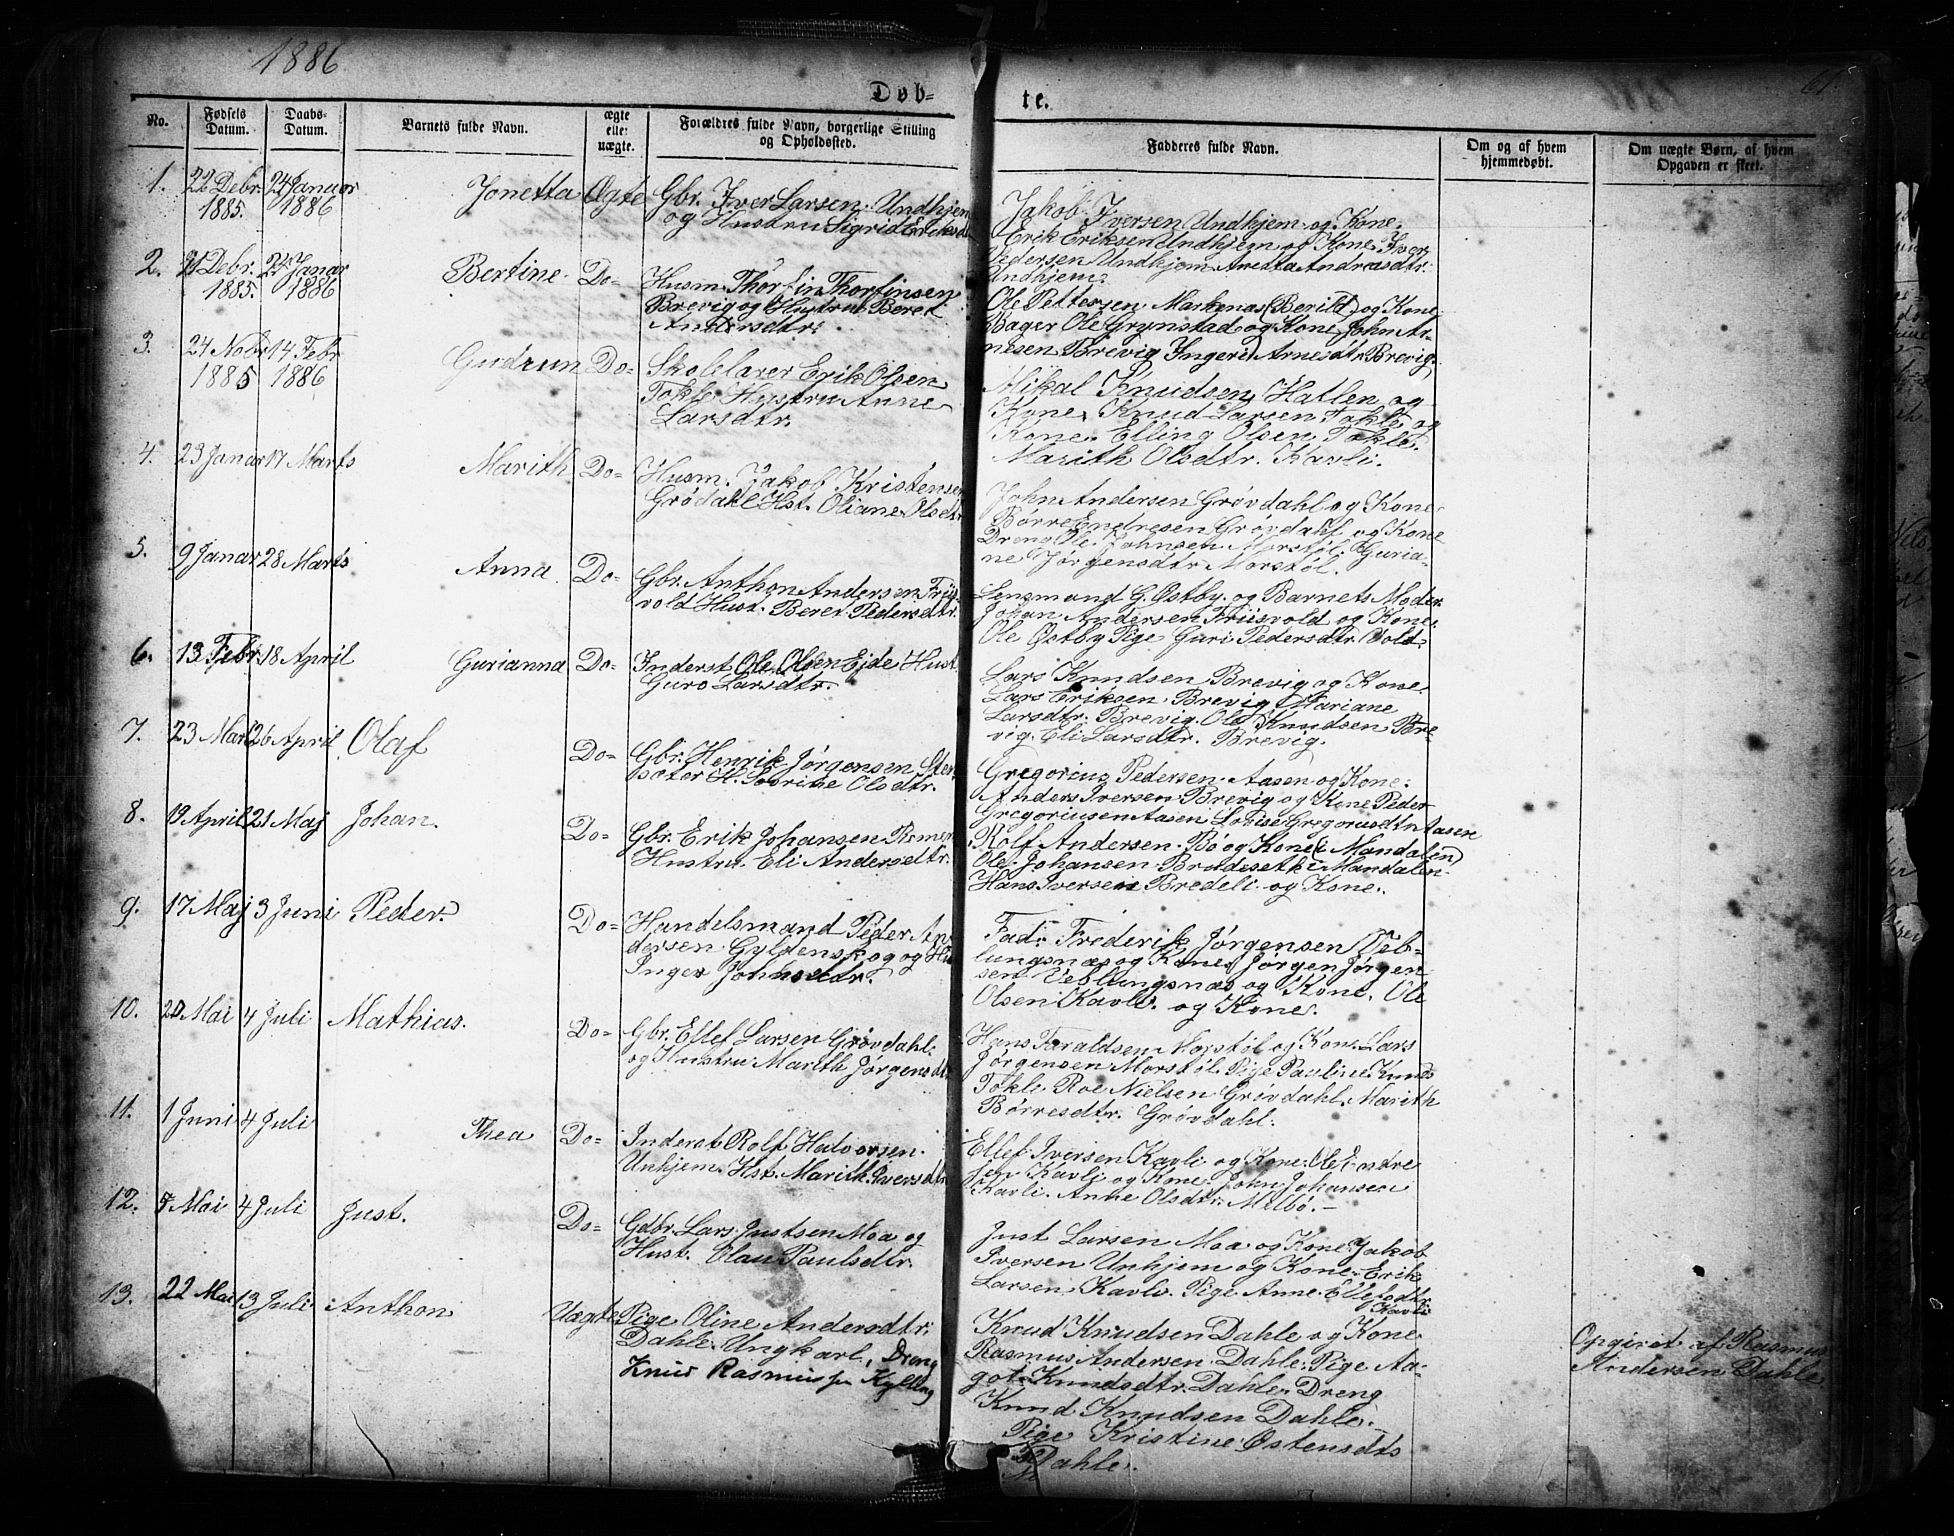 1886
61.
Døb-
te.
No.
Fødsels Datum.
Daabs-Datum.
Barnets fulde Navn.
ægte eller uægte.
Forældres fulde Navn, borgerlige Stilling og Opholdssted.
Fadderes fulde Navn.
Om og af hvem hjemmedøbt.
Om uægte Børn, af hvem Opgaven er skeet.
1. 22 Debr. 1885. 24 Januar 1886 Jonetta Ægte
Gbr. Iver Larsen Undhjem
og Hustru Sigrid Eriksdtr
Jakob Iversen Undhjem og Kone.
Erik Eriksen Undhjem og Kone. Iver
Pedersen Undhjem Anetta Andrasdtr.
Undhjem.
2. 21 Debr. 1885. 24 Janar 1886 Bertine. Do=
Husm. Thorfin Thorfinsen
Brevig og Hustru Beret
Andersdtr.
Ole Pettersen Markenæs (Berild) og Kone
Bager Ole Grynstad og Kone John Ar-
nesen Brevig Ingeri Arnesdtr. Brevig.
3. 24 Nobr 1885 14 Febr 1886 Gudrun Do=
Skolelærer Erik Olsen
Tokle Hustru Anne
Larsdtr.
Mikal Knudsen Hatlen og
Kone, Knud Larsen Tokle og
Kone. Elling Olsen Tokle.
Marith Olsdtr. Kavli.
4. 23 Janar 17 Marts Marith Do=
Husm. Jakob Kristensen
Grødahl Hst. Oliane Olsdtr
John Andersen Grøvdahl og Kone.
Børre Endresen Grøvdahl og Kone
Dreng Ole Johnsen Morstøl. Guria-
ne Jørgensdtr Morstøl.
5. 9 Janar 28 Marts Anna. Do=
Gbr. Anthon Andersen Friis-
vold Hust. Beret Pedersdtr.
Lensmand G. Østby. og Barnets Moder
Johan Andersen Friisvold og Kone.
Ole Østby Pige Guri Pedersdtr. Vold.
6. 13 Febr. 18 April Gurianna Do=
Inderst Ole Olsen Eide Hust.
Guro Larsdtr.
Lars Knudsen Brevig og Kone.
Lars Eriksen Brevig Mariane
Larsdtr. Brevig. Ole Knudsen Bre-
vig. Eli Larsdtr. Brevig.
7. 23 Mar 26 April Olaf Do=
Gbr. Henrik Jørgensen
H. Sevrine Olsdtr.
Gregorius Pedersen Aasen og Kone.
Anders Iversen Brevig og Kone Peder
Gregoriusen Aasen Lovise Gregorusdtr Aasen
8. 19 April 21 Maj Johan. Do=
Gbr. Erik Johansen
Hustru Eli Andersdtr.
Rolf Andersen Bø og Kone (i Mandalen)
Ole Johansen Brudesetk i Mandalen
Hans Iversen Bredeli og Kone.
9. 17 Maj 3 Juni Peder. Do=
Handelsmand Peder An-
dersen Gyldenskog og Hu
Inger Jonnsdtr.
Fad: Frederik Jørgensen Veb-
lungsnæs og Kone, Jørgen Jørgen-
sen Veblungsnæs og Kone. Ole
Olsen Kavli og Kone.
10. 20 Mai 4 Juli Mathias. Do=
Gbr. Ellef Larsen Grøvdahl.
og Hustru Marith Jørgensdtr
Hans Taraldsen Morstøl og Kone Lars
Jørgensen Morstøl. Pige Pauline Knuds
Tokle. Roe Nielsen Grøvdahl. Marith
Børresdtr. Grøvdahl.
11. 1 Juni 4 Juli Thea Do=
Inderst Rolf Halvorsen
Unhjem. Hst. Marith Iversdtr
Ellef Iversen Kavli og Kone. Ole Endre
sen Kavli og Kone John Johansen
Kavli. Anne Olsdtr. Melbø.
12. 5 Mai 4 Juli Just. Do=
Gdbr. Lars Justsen Moa og
Hust. Olau Paulsdtr
Just Larsen Moa og Kone. Jakob
Iversen Unhjem og Kone. Erik
Larsen Kavli. Pige Anne Ellefsdtr.
Kavli
13. 22 Mai 13 Juli Anthon Uægte
Pige Oline Andersdtr.
Dahle. Ungkarl, Dreng
Knud Rasmussen Kylling
Knud Knudsen Dahle og Kone
Rasmus Andersen Dahle. Pige Aa-
got Knudsdtr. Dahle. Dreng
Knud Knudsen Dahle.
Pige Kristine Østensdts
Dahle.
Opgivet af Rasmus
Andersen Dahle